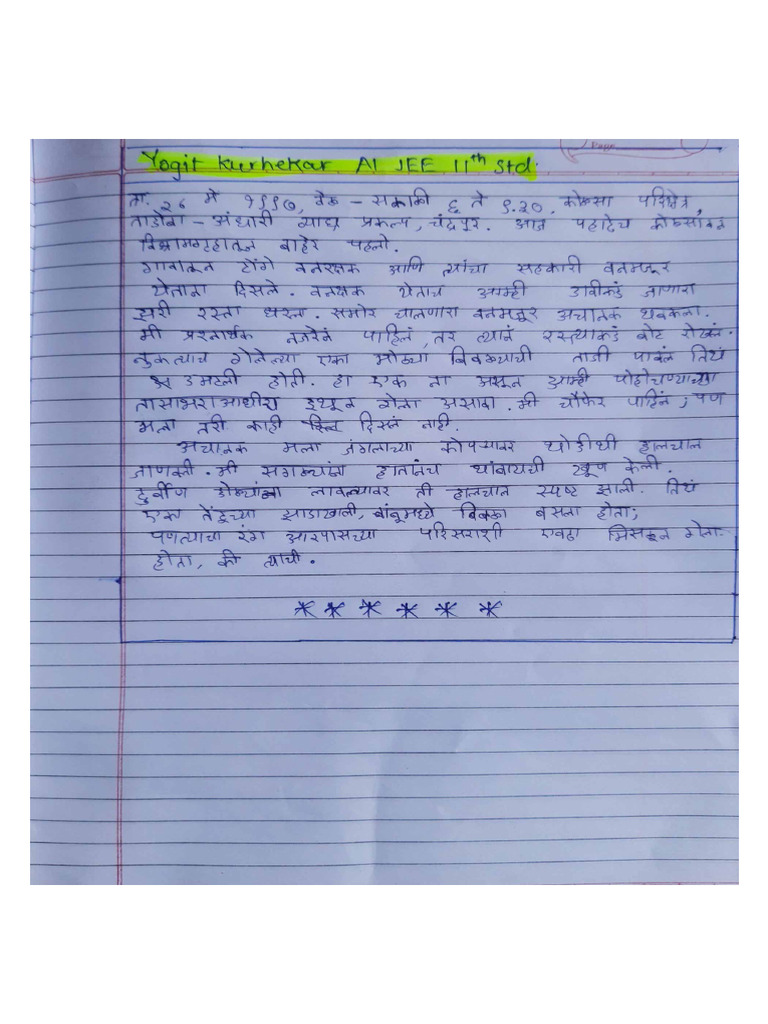 Page
Yogit Kurhekar A1 JEE 11th Std.
ता. २६ मे १९९७, वेळ - सकाळी ६ ते ९.३०. कोळसा परिक्षेत्र,
ताडोबा - अंधारी व्याघ्र प्रकल्प, चंद्रपूर. आज पहाटेच कोळसावन
विश्रामगृहातून बाहेर पडलो.
गावाकून होंगे वनरक्षक आणि त्यांचा सहकारी वनमजूर
येताना दिसले. वनरक्षक येताच आम्ही उजवीकडं जाणारा
झरी रस्ता धरला. समोर चालणारा वनमजूर अचानक थबकला.
मी प्रश्नार्थक नजरेनं पाहिलं, तर त्यानं रस्त्याकडं बोट रोखलं.
नुकत्याच गेलेल्या एका मोठ्या बिबळ्याची ताजी पावलं तिथं
उमटली होती. हा एक ना असून आम्ही पोहोचण्याच्या
तासाभराआधीच इथून गेला असावा. मी चौफेर पाहिलं, पण
मला तरी काही दिसलं नाही.
अचानक मला जंगलाच्या कोपऱ्यावर थोडीशी हालचाल
जाणवली. मी सगळ्यांना हातानंच थांबायची खूण केली.
दुर्बीण डोळ्यांना लावल्यावर ती हालचाल स्पष्ट झाली. तिथं
एका तेंदूच्या झाडाखाली, बांबूमध्ये बिबळा बसला होता;
पणत्याचा रंग आसपासच्या परिसराशी एवढा मिसळून गेला
होता, की त्याची.